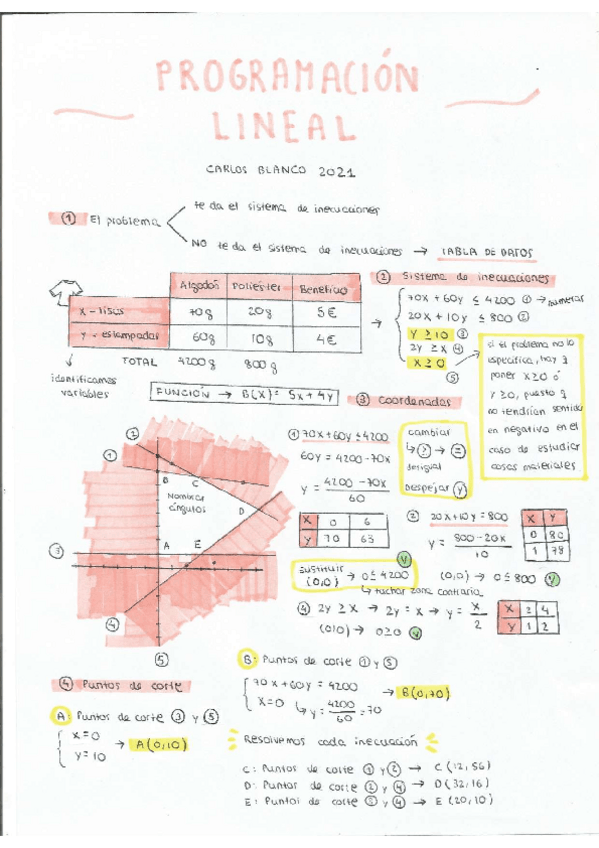 PROGRAMACIÓN
LINEAL
CARLOS BLANCO 2021
① El problema
te da el sistema de inecuaciones
NO te da el sistema de inecuaciones → TABLA DE DATOS
Algodón Poliéster Beneficio
X - lisas 70g 20g 5€
Y - estampadas 60g 10g 4€
TOTAL 4200g 800g
identificamos
variables
FUNCIÓN → B(X) = 5x + 4y
② Sistema de inecuaciones
70x + 60y ≤ 4200 ① → numeros
20x + 10y ≤ 800 ②
y ≥ 10 ③
2y ≥ x ④
x ≥ 0
⑤
si el problema no lo
especifica, hay q
poner x≥0 ó
y≥0, puesto q
no tendrían sentido
en negativo en el
caso de estudiar
cosas materiales
③ Coordenadas
① 70x+60y ≤ 4200
60y = 4200 - 70x
y = 4200 - 70x / 60
X 0 6
Y 70 63
cambiar
↳ ≥ → =
desigual
Despejar y
sustituir
(0,0) → 0 ≤ 4200
↳ tachar zona contraria
② 20x+10y = 800
y = 800 - 20x / 10
X Y
0 80
1 78
(0,0) → 0 ≤ 800 V
④ 2y ≥ x → 2y = x → y = x / 2
X 2 4
Y 1 2
(0,0) → 0≥0 V
② ① B C D
Nombrar
ángulos
A E
③ ④ ⑤
④ Puntos de corte
A: Puntos de corte ③ y ⑤
x=0
y=10
→ A(0,10)
B: Puntos de corte ① y ⑤
70x + 60y = 4200
x=0 ↳ y = 4200 / 60 = 70
→ B(0,70)
Resolvemos cada inecuación
C: Puntos de corte ① y ② → C (12,56)
D: Puntos de corte ② y ④ → D (32,16)
E: Puntos de corte ③ y ④ → E (20,10)